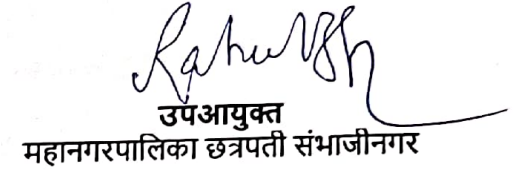 उपआयुक्त
महानगरपालिका छत्रपती संभाजीनगर